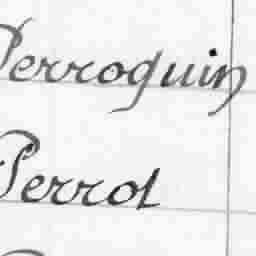 Perroquin
Perrot